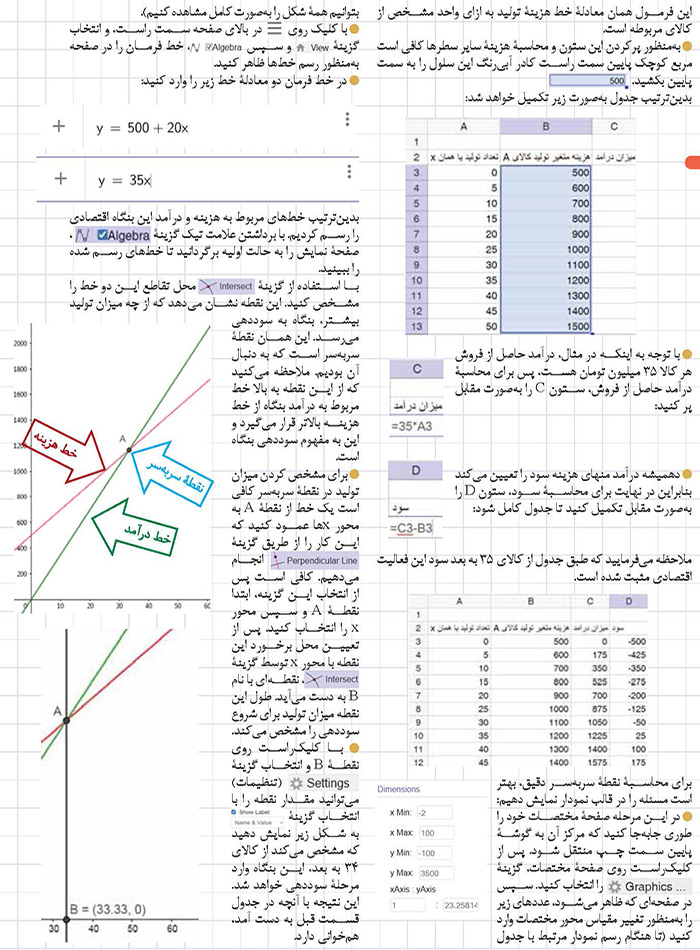 این فرمول همان معادلهٔ خط هزینهٔ تولید به ازای واحد مشخص از
کالای مربوطه است.
به‌منظور پرکردن این ستون و محاسبهٔ هزینهٔ سایر سطرها کافی است
مربع کوچک پایین سمت راست کادر آبی‌رنگ این سلول را به سمت
پایین بکشید. 500
بدین‌ترتیب جدول به‌صورت زیر تکمیل خواهد شد:
A B C
1
2 تعداد تولید یا همان x هزینه متغیر تولید کالای A میزان درآمد
3 0 500
4 5 600
5 10 700
6 15 800
7 20 900
8 25 1000
9 30 1100
10 35 1200
11 40 1300
12 45 1400
13 50 1500
با توجه به اینکه در مثال، درآمد حاصل از فروش
هر کالا ۳۵ میلیون تومان هست، پس برای محاسبهٔ
درآمد حاصل از فروش، ستون C را به‌صورت مقابل
پر کنید:
C
میزان درآمد
=35*A3
دهمیشه درآمد منهای هزینه سود را تعیین می‌کند
بنابراین در نهایت برای محاسبهٔ سود، ستون D را
به‌صورت مقابل تکمیل کنید تا جدول کامل شود:
D
سود
=C3-B3
ملاحظه می‌فرمایید که طبق جدول از کالای ۳۵ به بعد سود این فعالیت
اقتصادی مثبت شده است.
A B C D
1
2 تعداد تولید یا همان x هزینه متغیر تولید کالای A میزان درآمد سود
3 0 500 0 -500
4 5 600 175 -425
5 10 700 350 -350
6 15 800 525 -275
7 20 900 700 -200
8 25 1000 875 -125
9 30 1100 1050 -50
10 35 1200 1225 25
11 40 1300 1400 100
12 45 1400 1575 175
برای محاسبهٔ نقطهٔ سربه‌سر دقیق، بهتر
است مسئله را در قالب نمودار نمایش دهیم:
در این مرحله صفحهٔ مختصات خود را
طوری جابه‌جا کنید که مرکز آن به گوشهٔ
پایین سمت چپ منتقل شود. پس از
کلیک‌راست روی صفحهٔ مختصات، گزینهٔ
Graphics ... را انتخاب کنید. سپس
در صفحه‌ای که ظاهر می‌شود، عددهای زیر
را به‌منظور تغییر مقیاس محور مختصات وارد
کنید (تا هنگام رسم نمودار مرتبط با جدول
Dimensions
x Min: -2
x Max: 100
y Min: -100
y Max: 3500
xAxis : yAxis
1 : 23.25814
بتوانیم همهٔ شکل را به‌صورت کامل مشاهده کنیم).
با کلیک روی ☰ در بالای صفحه سمت راست، و انتخاب
گزینهٔ View و سپس Algebra، خط فرمان را در صفحه
به‌منظور رسم خط‌ها ظاهر کنید.
در خط فرمان دو معادلهٔ خط زیر را وارد کنید:
+ y = 500 + 20x
+ y = 35x
بدین‌ترتیب خط‌های مربوط به هزینه و درآمد این بنگاه اقتصادی
را رسم کردیم. با برداشتن علامت تیک گزینهٔ Algebra،
صفحهٔ نمایش را به حالت اولیه برگردانید تا خط‌های رسم شده
را ببینید.
با استفاده از گزینهٔ Intersect محل تقاطع این دو خط را
مشخص کنید. این نقطه نشان می‌دهد که از چه میزان تولید
بیشتر، بنگاه به سوددهی
می‌رسد. این همان نقطهٔ
سربه‌سر است که به دنبال
آن بودیم. ملاحظه می‌کنید
که از این نقطه به بالا خط
مربوط به درآمد بنگاه از خط
هزینه بالاتر قرار می‌گیرد و
این به مفهوم سوددهی بنگاه
است.
برای مشخص کردن میزان
تولید در نقطهٔ سربه‌سر کافی
است یک خط از نقطهٔ A به
محور xها عمود کنید که
این کار را از طریق گزینهٔ
Perpendicular Line انجام
می‌دهیم. کافی است پس
از انتخاب این گزینه، ابتدا
نقطهٔ A و سپس محور
x را انتخاب کنید. پس از
تعیین محل برخورد این
نقطه با محور x توسط گزینهٔ
Intersect، نقطه‌ای با نام
B به دست می‌آید. طول این
نقطه میزان تولید برای شروع
سوددهی را مشخص می‌کند.
با کلیک‌راست روی
نقطهٔ B و انتخاب گزینهٔ
Settings (تنظیمات)
می‌توانید مقدار نقطه را با
انتخاب گزینهٔ Show Label
Name & Value
به شکل زیر نمایش دهید
که مشخص می‌کند از کالای
۳۴ به بعد، این بنگاه وارد
مرحلهٔ سوددهی خواهد شد.
این نتیجه با آنچه در جدول
قسمت قبل به دست آمد،
هم‌خوانی دارد.
2000
1800
1600
1400
1200
1000
800
600
400
200
0 10 20 30 40 50 60
A
خط هزینه
نقطهٔ سربه‌سر
خط درآمد
A
B = (33.33, 0)
30 40 50 60